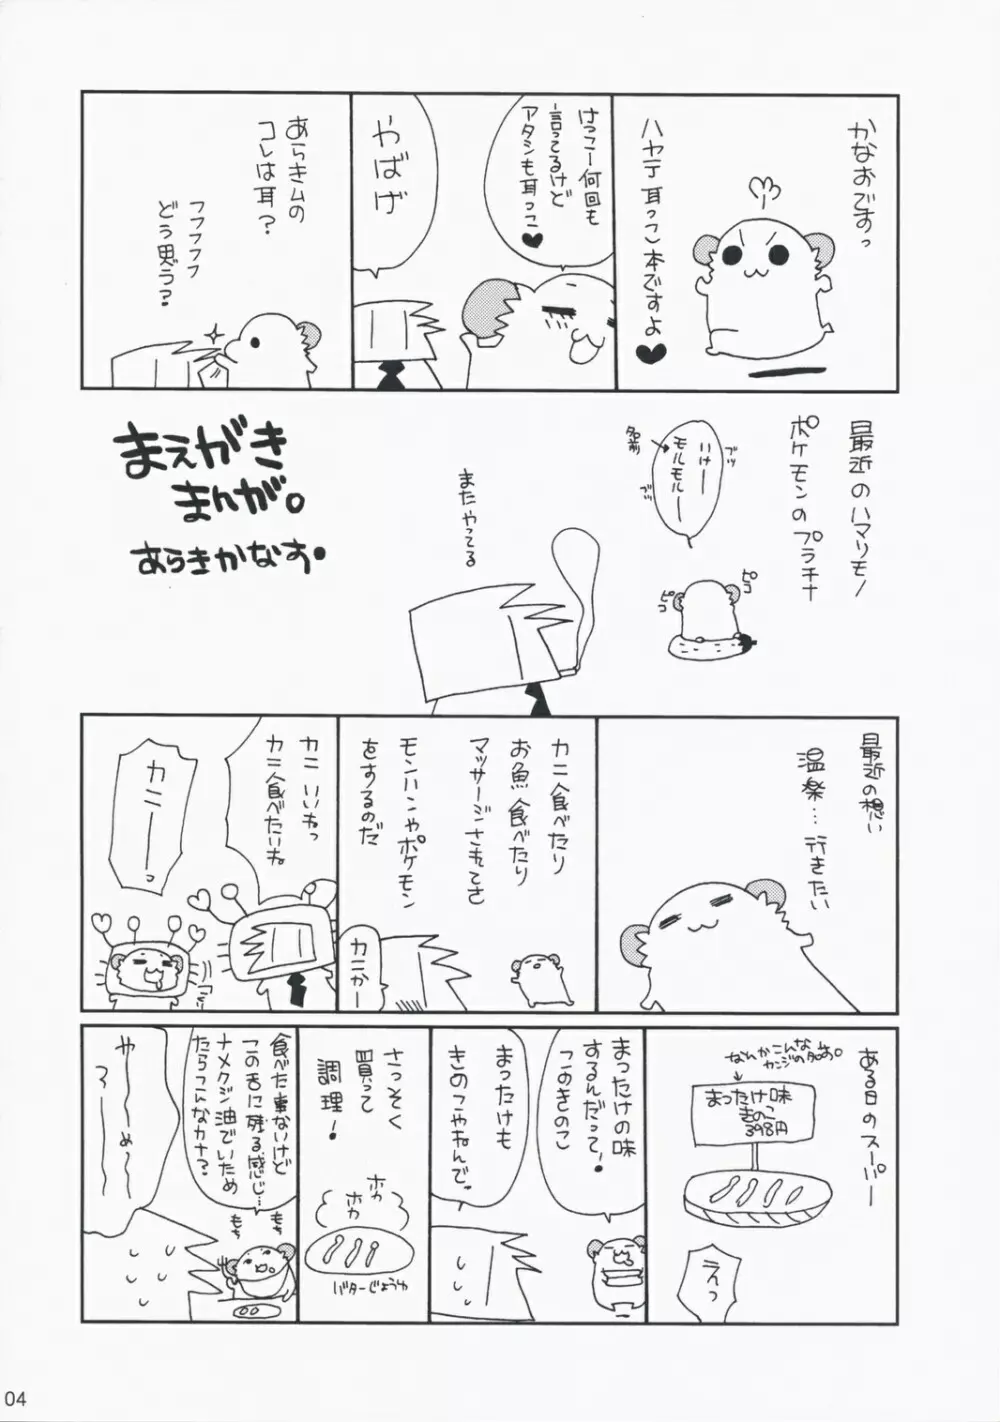 かなおですっ
ハヤテ耳っこ本ですよ♥
けっこー何回も
言ってるけど
アタシも耳っこ♥
やばげ
あらきムの
コレは耳?
フフフフフ
どう思う?
最近のハマリモノ
ポケモンのプラチナ
ブツ
いけー
モルモルー
ブツ
名前
ピコ
ピコ
またやってる
まえがき
まんが。
あらきかなお。
最近の想い
温楽…行きたい
カニ食べたり
お魚食べたり
マッサージされてさ
モンハンやポケモン
をするのだ
カニかー
カニいいねっ
カニ食べたいね。
カニーーっ
ある日のスーパー
なんかこんな
カンジの名前。
まったけ味
きのこ
398円
えっ
まったけの味
するんだって!
このきのこ
まったけも
きのこやねんで。
さっそく
買って
調理!
ホカ
ホカ
バターじょうゆ
食べた事ないけど
この舌に残る感じ…
ナメクジ油でいため
たらこんなカナ?
もち
もち
や〜〜めっ〜〜